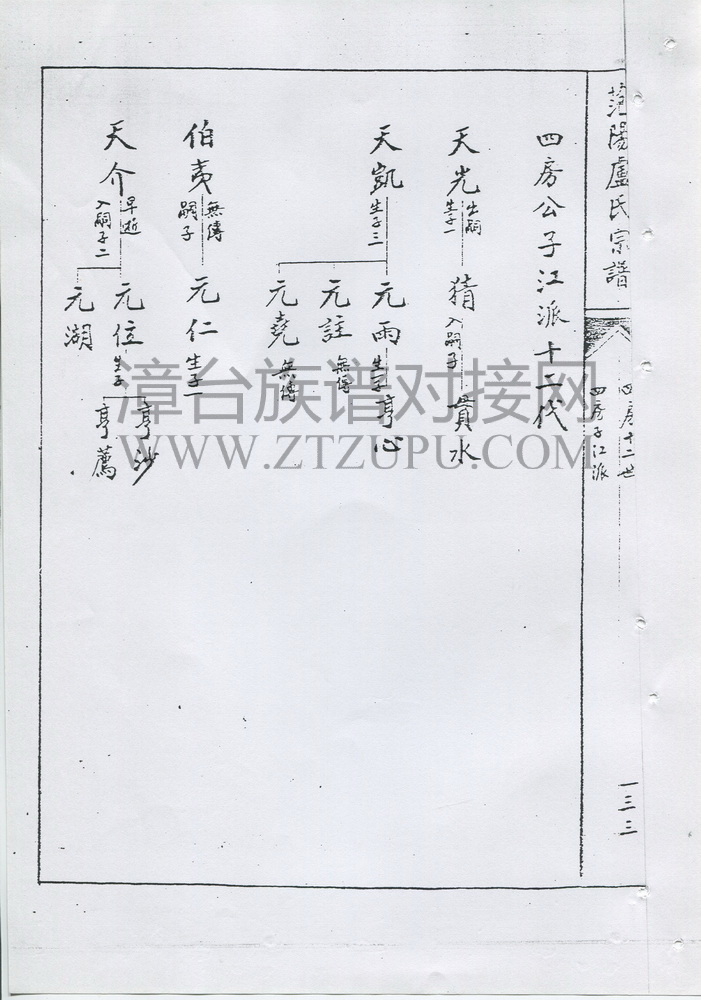 范陽盧氏宗譜
四房十二世
四房子江派
一三三
四房公子江派十二代
天光
出嗣
生子一
猜
入嗣子
貫水
天凱
生子三
元雨
生子
亨心
元註
無傳
元堯
無傳
伯夷
無傳
嗣子
元仁
生子一
天介
早逝
入嗣子二
元位
生子
亨沙
亨薦
元湖
漳台族谱对接网
WWW.ZTZUPU.COM